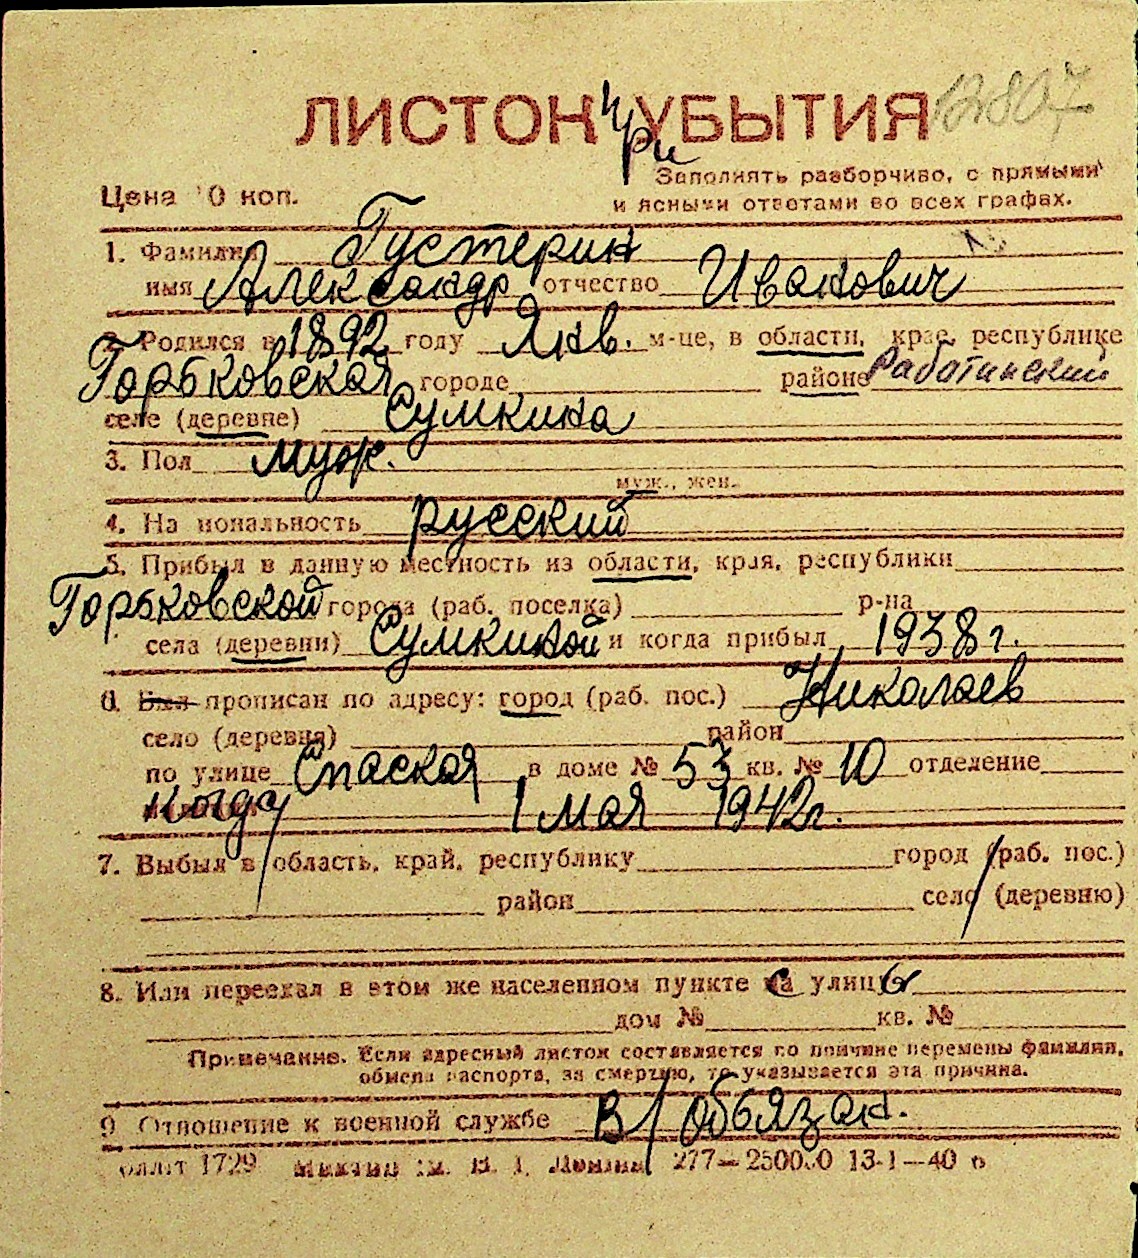 ЛИСТОК при УБЫТИЯ 12807
Цена 10 коп. Заполнять разборчиво, с прямыми
и ясными ответами во всех графах.
1. Фамилия Густерин
имя Александр отчество Иванович
2. Родился в 1892 году Янв. м-це, в области, крае, республике
Горьковская городе районе Работкинский
селе (деревне) Сумкина
3. Пол муж.
муж., жен.
4. Национальность русский
5. Прибыл в данную местность из области, края, республики
Горьковской города (раб. поселка) р-на
села (деревни) Сумкиной и когда прибыл 1938 г.
6. Был прописан по адресу: город (раб. пос.) Николаев
село (деревня) район
по улице Спаская в доме № 53 кв. № 10 отделение
когда 1 мая 1942 г.
7. Выбыл в область, край, республику город (раб. пос.)
район село (деревню)
8. Или переехал в этом же населенном пункте с улицы
дом № кв. №
Примечание. Если адресный листок составляется по причине перемены фамилии,
обмена паспорта, за смертью, то указывается эта причина.
9 Отношение к военной службе В/обязан.
1729 277—250000 13-1—40